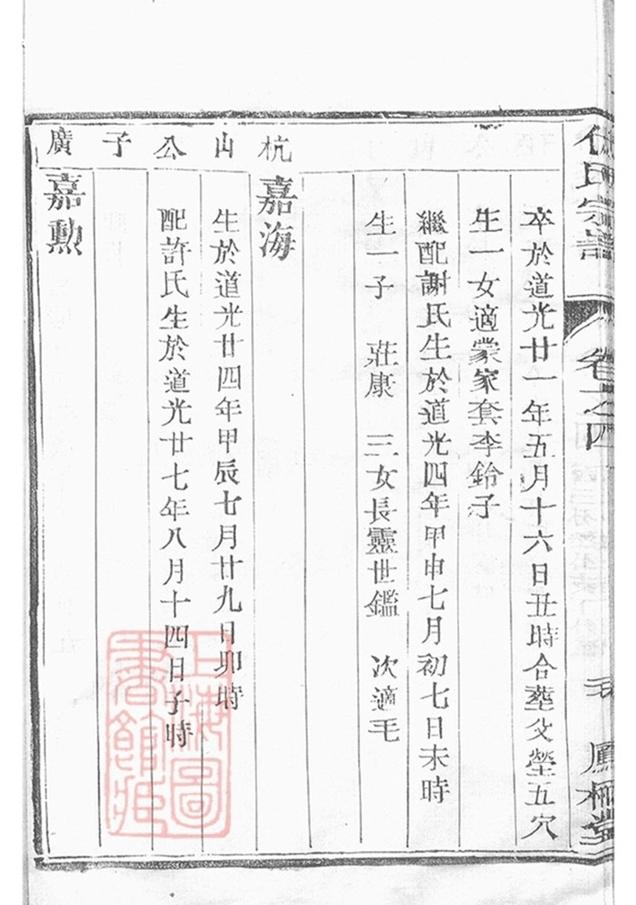 氏宗譜 卷之四
卒於道光廿一年五月十六日丑時合葬父塋五穴
生一女適蒙家套李鈴子
繼配謝氏生於道光四年甲申七月初七日未時
生一子 莊康 三女長靈世鑑 次適毛
杭山公子廣
嘉海
生於道光廿四年甲辰七月廿九日卯時
配許氏生於道光廿七年八月十四日子時
嘉勳
上海圖書館藏